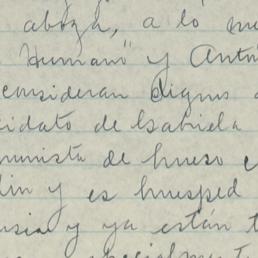 aboza, a lo me
Humano" y Antón
consideran dignos d
idato de Gabriela
munista de hueso c
lin y es huesped
usia y ya están t